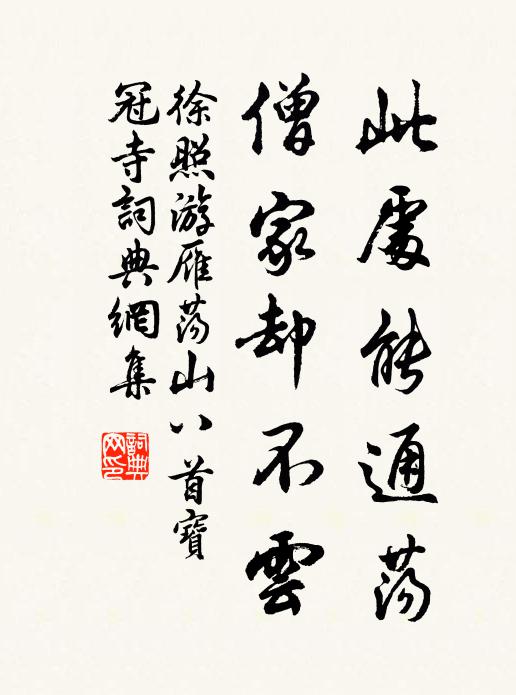 此處能通蕩
僧家却不雲
徐照游雁蕩山八首寶
冠寺詞典網集
詞典网印